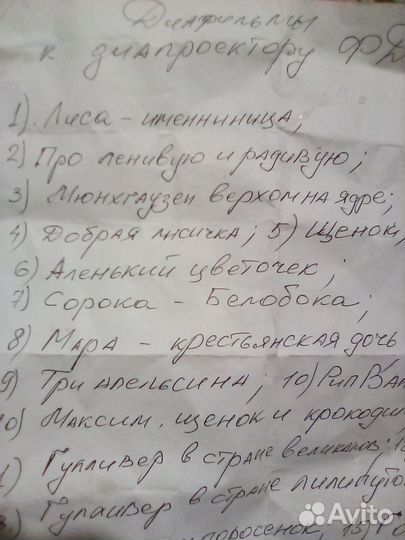 Диафильмы
к диапроектору ФД
1). Лиса - именниница;
2) Про ленивую и радивую;
3) Мюнхгаузен верхом на ядре;
4) Добрая лисичка; 5) Щенок,
6) Аленький цветочек;
7) Сорока - Белобока;
8) Мара - крестьянская дочь
9) Три апельсина; 10) Рип Ван
10) Максим, щенок и крокоди
1) Гулливер в стране великанов;
Гулливер в стране лилипуто
поросенок, 13)
Avito